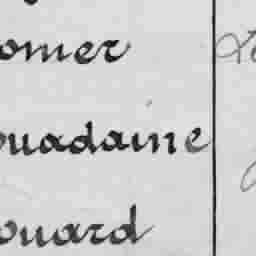 omer
ouadaine
ouard